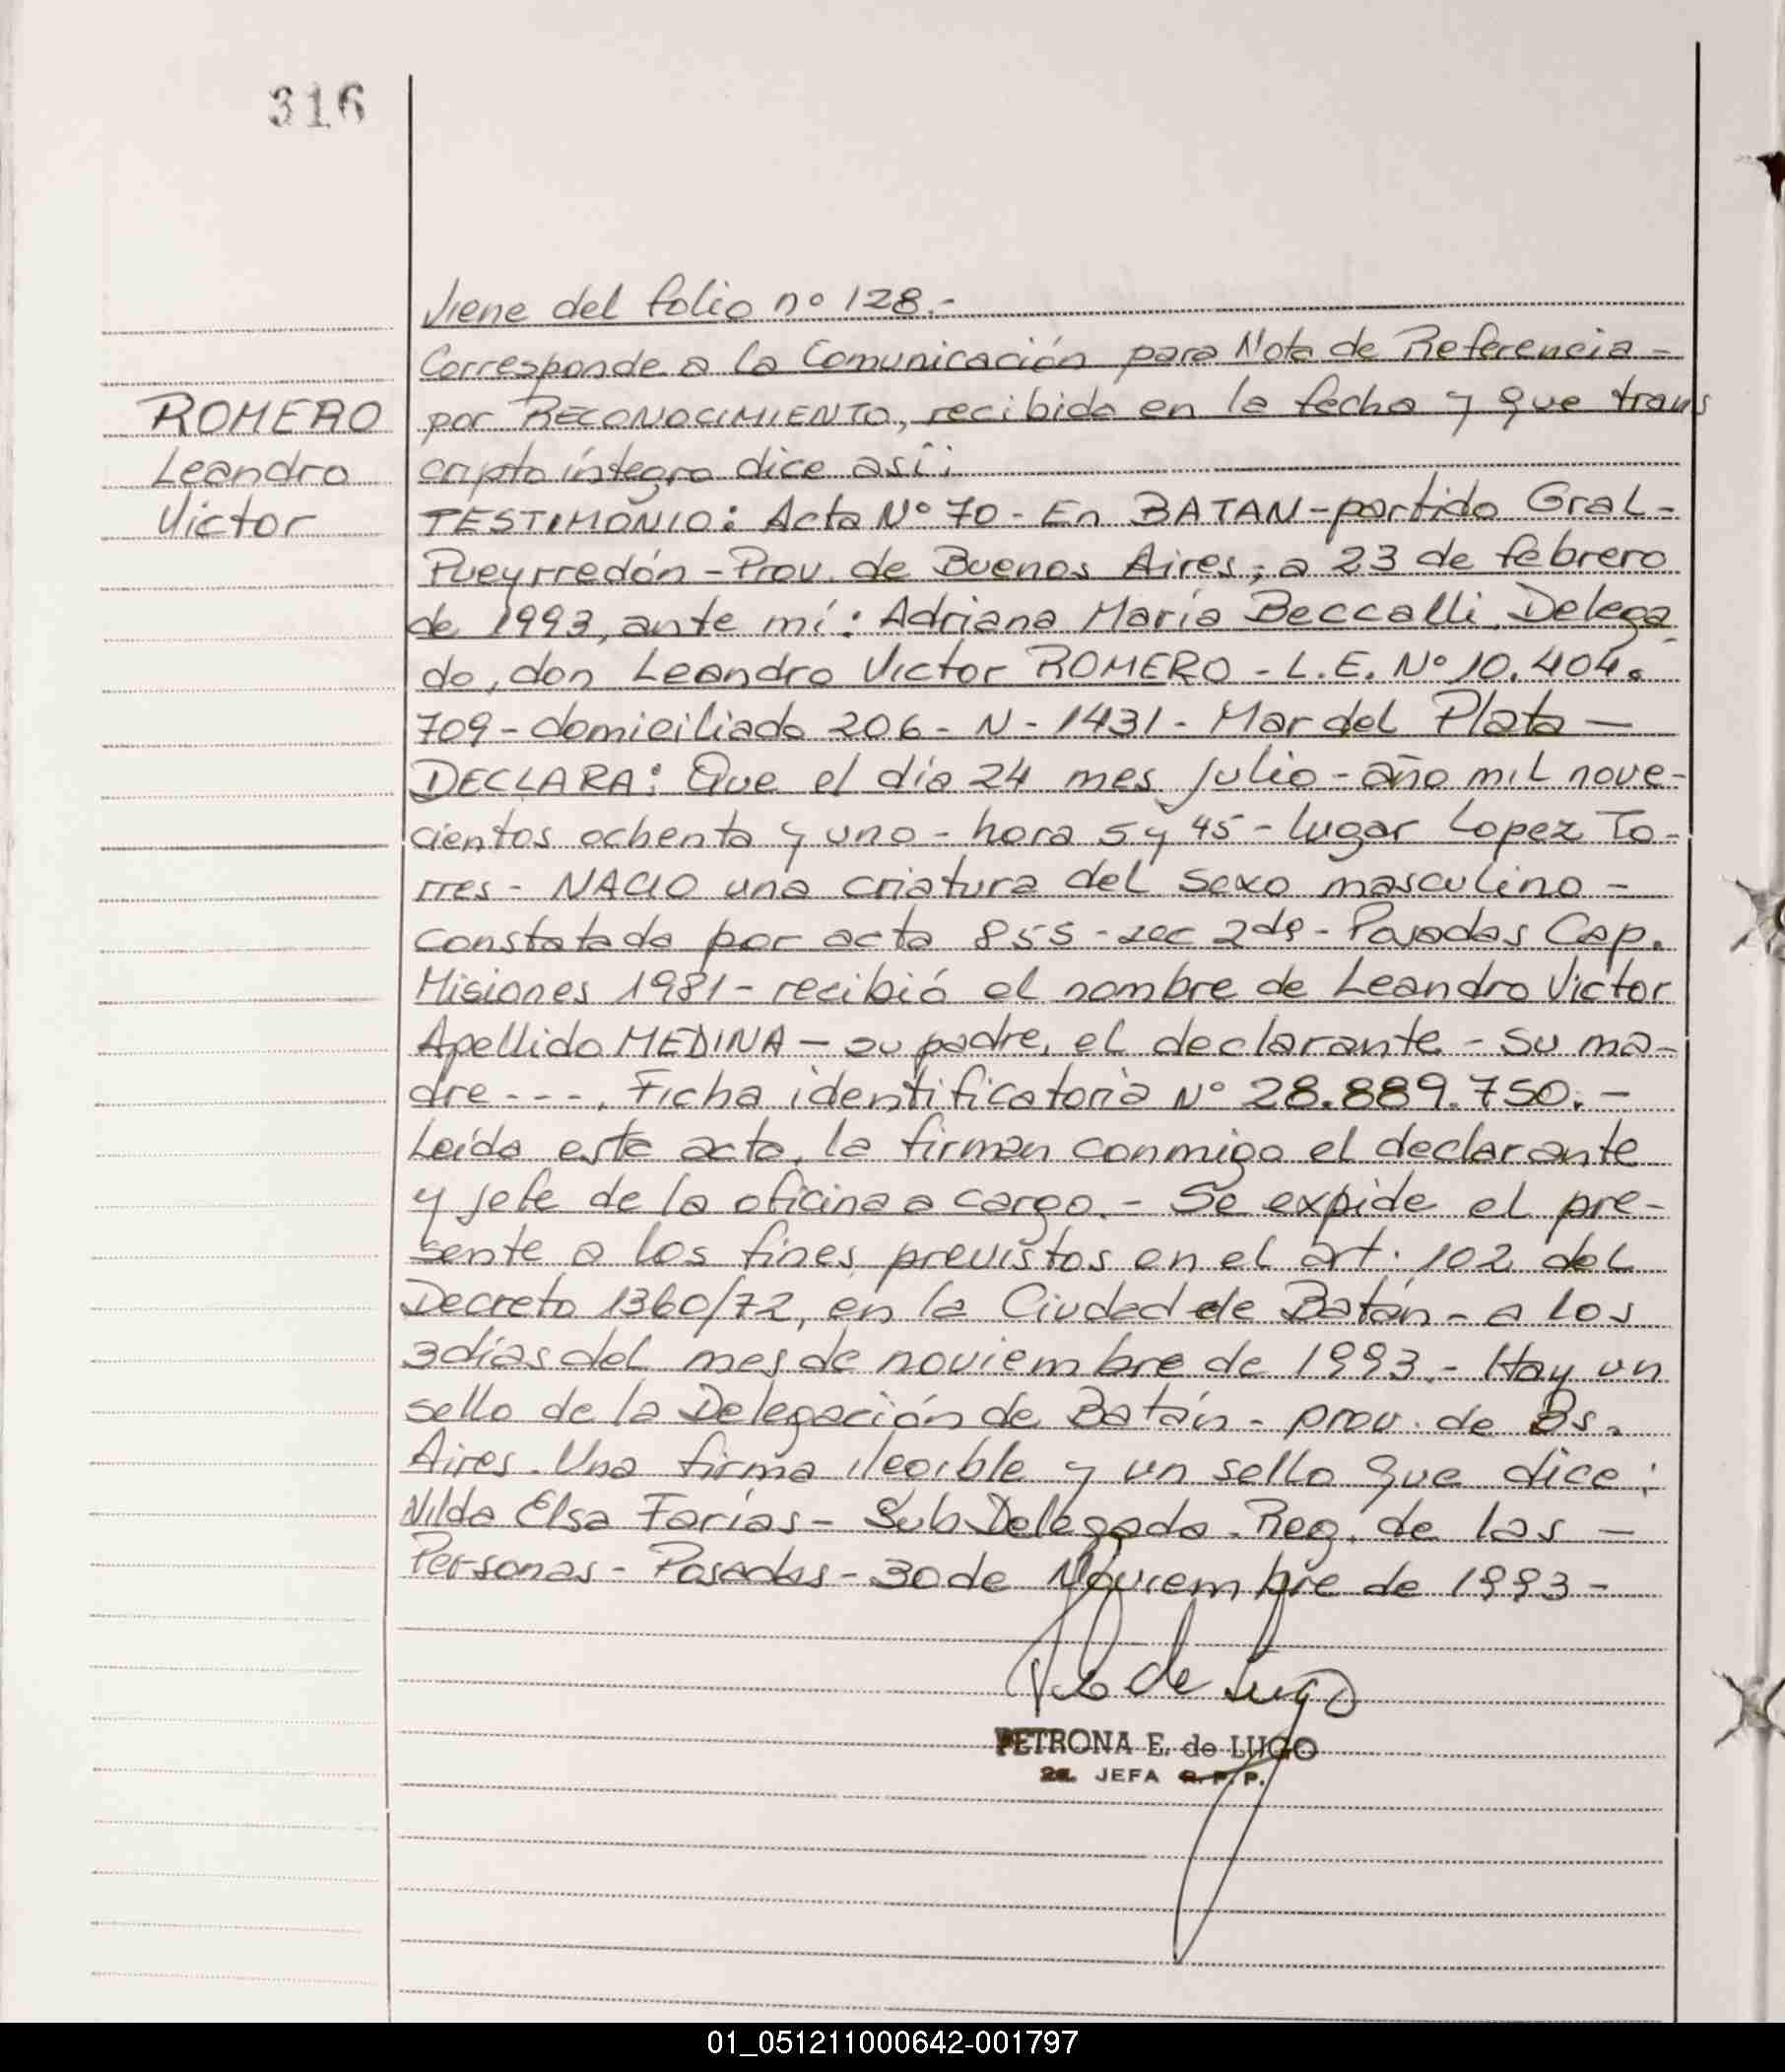 316
ROMERO
Leandro
Victor
Viene del folio nº 128.-
Corresponde a la Comunicación para Nota de Referencia -
por RECONOCIMIENTO, recibida en la fecha y que trans
cripto íntegro dice así:
TESTIMONIO: Acta Nº 70 - En BATAN - partido Gral -
Pueyrredón - Prov. de Buenos Aires, a 23 de febrero
de 1993, ante mí: Adriana María Beccalli, Delega
do, don Leandro Victor ROMERO - L.E. Nº 10.404.
709 - domiciliado 206 - N - 1431 - Mar del Plata —
DECLARA: Que el día 24 mes Julio - año mil nove-
cientos ochenta y uno - hora 5 y 45 - lugar Lopez To-
rres - NACIO una criatura del sexo masculino -
constatada por acta 855 - sec 2da - Posadas Cap.
Misiones 1981 - recibió el nombre de Leandro Victor
Apellido MEDINA - su padre, el declarante - su ma-
dre - - -. Ficha identificatoria Nº 28.889.750. -
Leída este acta, la firman conmigo el declarante
y jefe de la oficina a cargo. - Se expide el pre-
sente a los fines previstos en el art. 102 del
Decreto 1360/72, en la Ciudad de Batán - a los
3 días del mes de noviembre de 1993. - Hay un
sello de la Delegación de Batán - prov. de Bs.
Aires. Una firma ilegible y un sello que dice:
Nilda Elsa Farías - Sub Delegada - Reg. de las —
Personas - Posadas - 30 de Noviembre de 1993 -
de Lugo
PETRONA E. de LUGO
2a. JEFA R.P.P.
01_051211000642-001797